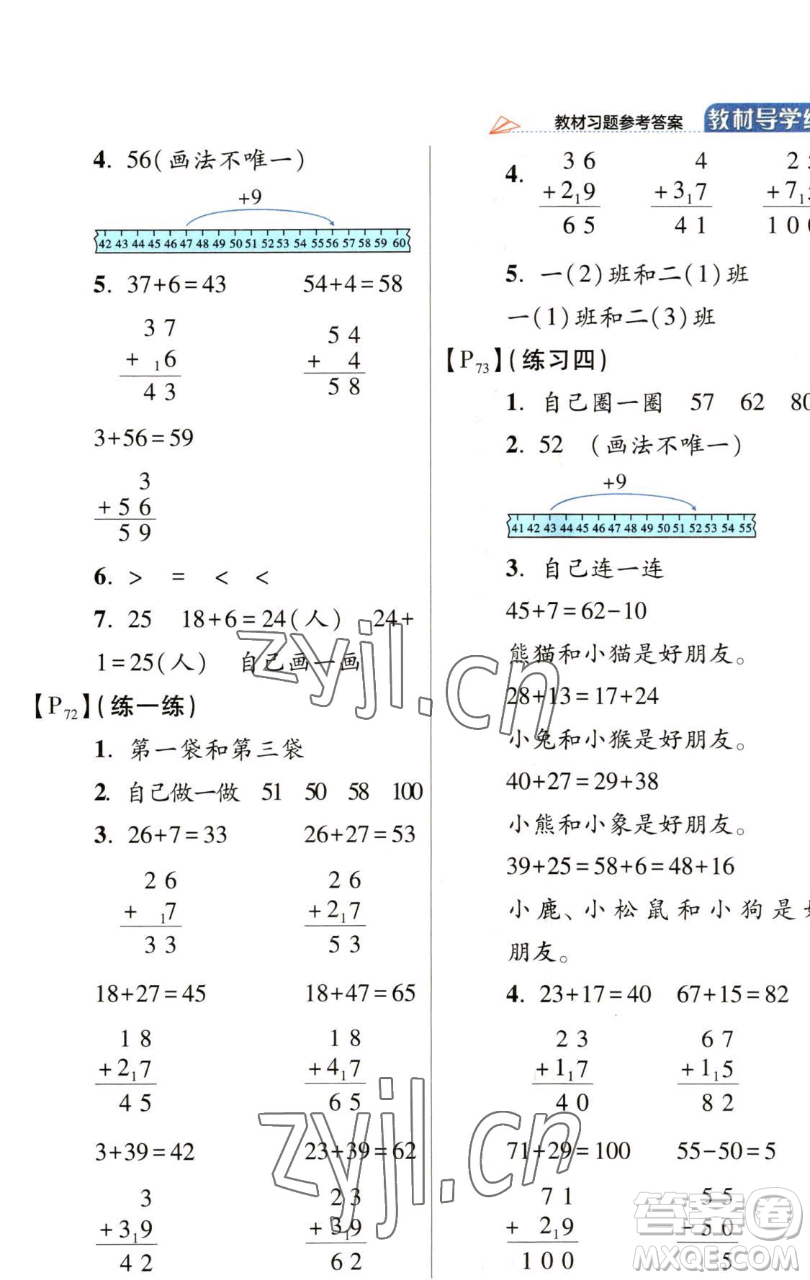 教材习题参考答案 教材导学
4. 56(画法不唯一)
+9
42 43 44 45 46 47 48 49 50 51 52 53 54 55 56 57 58 59 60
5. 37+6=43 54+4=58
3 7 5 4
+ ₁6 + 4
4 3 5 8
3+56=59
3
+ 5 6
5 9
6. > = < <
7. 25 18+6=24(人) 24+
1=25(人) 自己画一画
【P₇₂】(练一练)
1. 第一袋和第三袋
2. 自己做一做 51 50 58 100
3. 26+7=33 26+27=53
2 6 2 6
+ ₁7 +2₁7
3 3 5 3
18+27=45 18+47=65
1 8 1 8
+2₁7 +4₁7
4 5 6 5
3+39=42 23+39=62
3 2 3
+3₁9 +3₁9
4 2 6 2
4. 3 6 4 2
+2₁9 +3₁7 +7₁
6 5 4 1 1 0 0
5. 一(2)班和二(1)班
一(1)班和二(3)班
【P₇₃】(练习四)
1. 自己圈一圈 57 62 80
2. 52 (画法不唯一)
+9
41 42 43 44 45 46 47 48 49 50 51 52 53 54 55
3. 自己连一连
45+7=62-10
熊猫和小猫是好朋友。
28+13=17+24
小兔和小猴是好朋友。
40+27=29+38
小熊和小象是好朋友。
39+25=58+6=48+16
小鹿、小松鼠和小狗是好
朋友。
4. 23+17=40 67+15=82
2 3 6 7
+1₁7 +1₁5
4 0 8 2
71+29=100 55-50=5
7 1 5 5
+ 2₁9 -5 0
1 0 0 5
zyjl.cn
zyjl.cn
答案卷
MXQE.COM